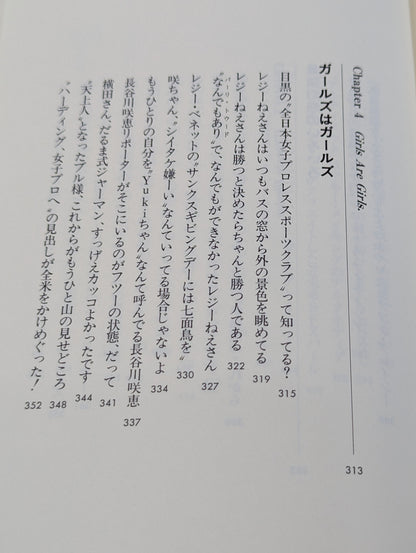 Chapter 4 Girls Are Girls.
313
ガールズはガールズ
目黒の〝全日本女子プロレススポーツクラブ〟って知ってる? 315
レジーねえさんはいつもバスの窓から外の景色を眺めてる 319
レジーねえさんは勝つと決めたらちゃんと勝つ人である 322
バーリ・トゥード
〝なんでもあり〟で、なんでもができなかったレジーねえさん 327
レジー・ベネットの〝サンクスギビングデーには七面鳥を〟 330
咲ちゃん、〝シイタケ嫌ーい〟なんていってる場合じゃないよ 334
もうひとりの自分を〝Yukiちゃん〟なんて呼んでる長谷川咲恵 337
長谷川咲恵リポーターがそこにいるのがフツーの状態、だって 341
横田さん、だるま式ジャーマン、すっげえカッコよかったです 344
〝天上人〟となったブル様、これからがもうひと山の見せどころ 348
〝ハーディング、女子プロへ〟の見出しが全米をかけめぐった! 352